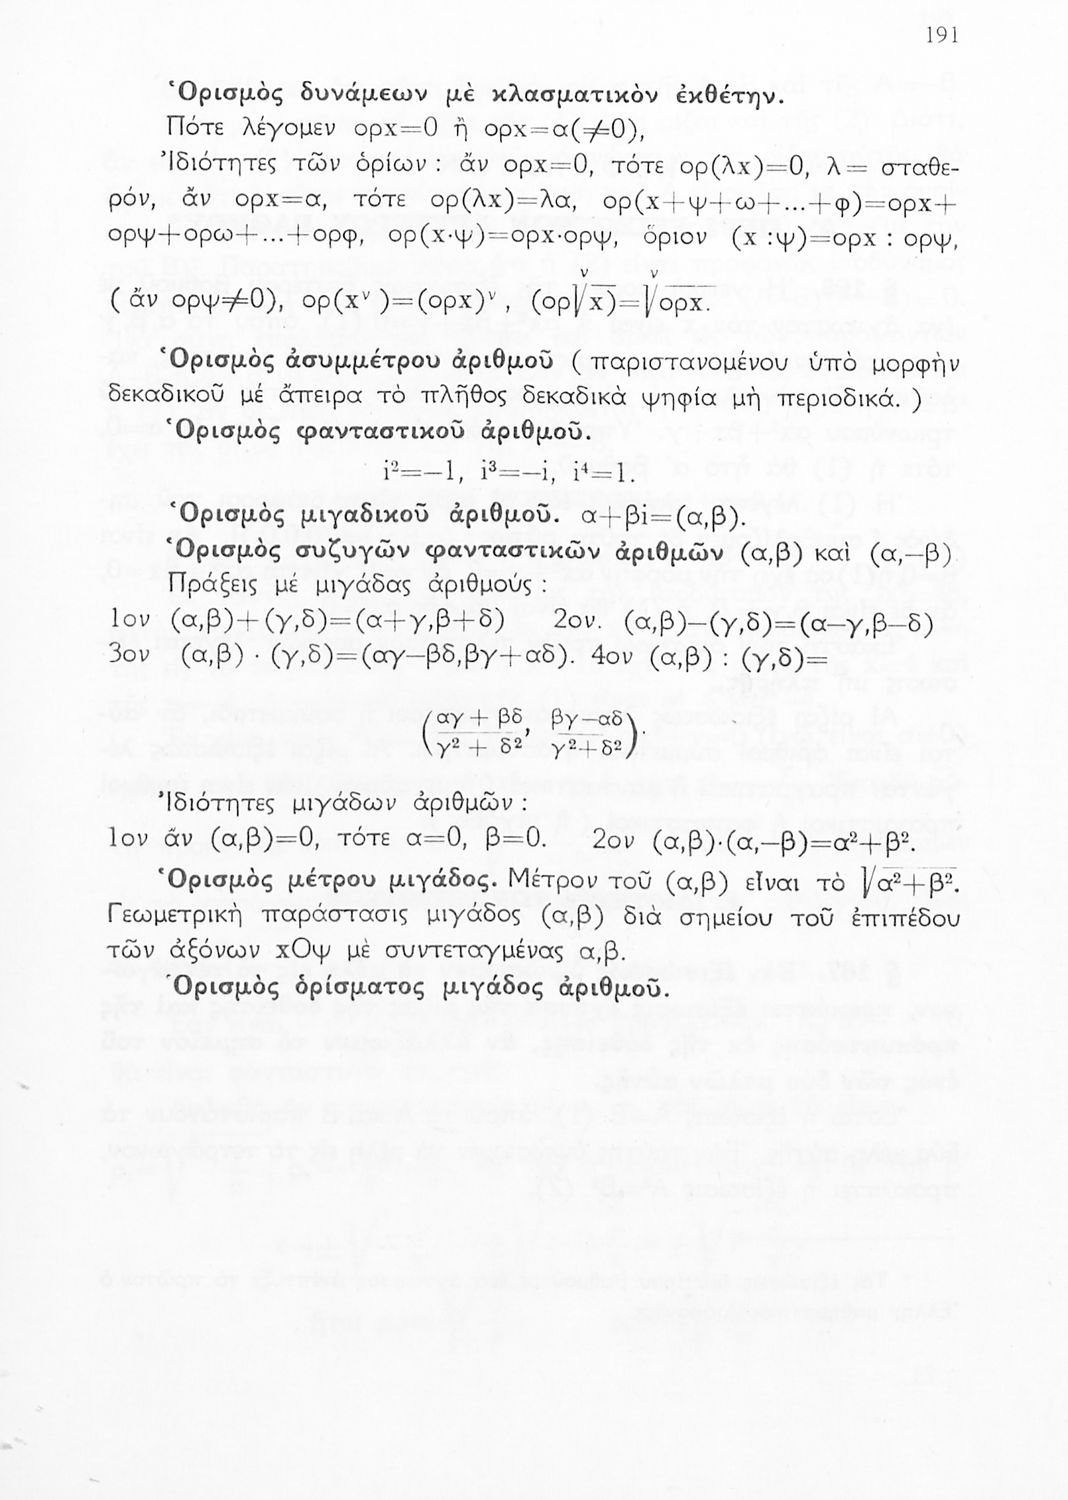 191
Ὁρισμὸς δυνάμεων μὲ κλασματικὸν ἐκθέτην.
Πότε λέγομεν ορχ=0 ἢ ορχ=α(≠0),
Ἰδιότητες τῶν ὁρίων : ἄν ορχ=0, τότε ορ(λχ)=0, λ= σταθε-
ρόν, ἄν ορχ=α, τότε ορ(λχ)=λα, ορ(χ+ψ+ω+...+φ)=ορχ+
ορψ+ορω+...+ορφ, ορ(χ·ψ)=ορχ·ορψ, ὅριον (χ :ψ)=ορχ : ορψ,
( ἄν ορψ≠0), ορ(χᵛ )=(ορχ)ᵛ , (ορ ᵛ√χ)= ᵛ√ορχ.
Ὁρισμὸς ἀσυμμέτρου ἀριθμοῦ ( παριστανομένου ὑπὸ μορφὴν
δεκαδικοῦ μέ ἄπειρα τὸ πλῆθος δεκαδικὰ ψηφία μὴ περιοδικά. )
Ὁρισμὸς φανταστικοῦ ἀριθμοῦ.
i²=—1, i³=—i, i⁴=1.
Ὁρισμὸς μιγαδικοῦ ἀριθμοῦ. α+βi=(α,β).
Ὁρισμὸς συζυγῶν φανταστικῶν ἀριθμῶν (α,β) καὶ (α,—β)
Πράξεις μέ μιγάδας ἀριθμούς :
1ον (α,β)+(γ,δ)=(α+γ,β+δ) 2ον. (α,β)—(γ,δ)=(α—γ,β—δ)
3ον (α,β) · (γ,δ)=(αγ—βδ,βγ+αδ). 4ον (α,β) : (γ,δ)=
(αγ + βδ / γ² + δ², βγ—αδ / γ²+δ²).
Ἰδιότητες μιγάδων ἀριθμῶν :
1ον ἄν (α,β)=0, τότε α=0, β=0. 2ον (α,β)·(α,—β)=α²+β².
Ὁρισμὸς μέτρου μιγάδος. Μέτρον τοῦ (α,β) εἶναι τὸ √α²+β².
Γεωμετρικὴ παράστασις μιγάδος (α,β) διὰ σημείου τοῦ ἐπιπέδου
τῶν ἀξόνων χΟψ μὲ συντεταγμένας α,β.
Ὁρισμὸς ὁρίσματος μιγάδος ἀριθμοῦ.